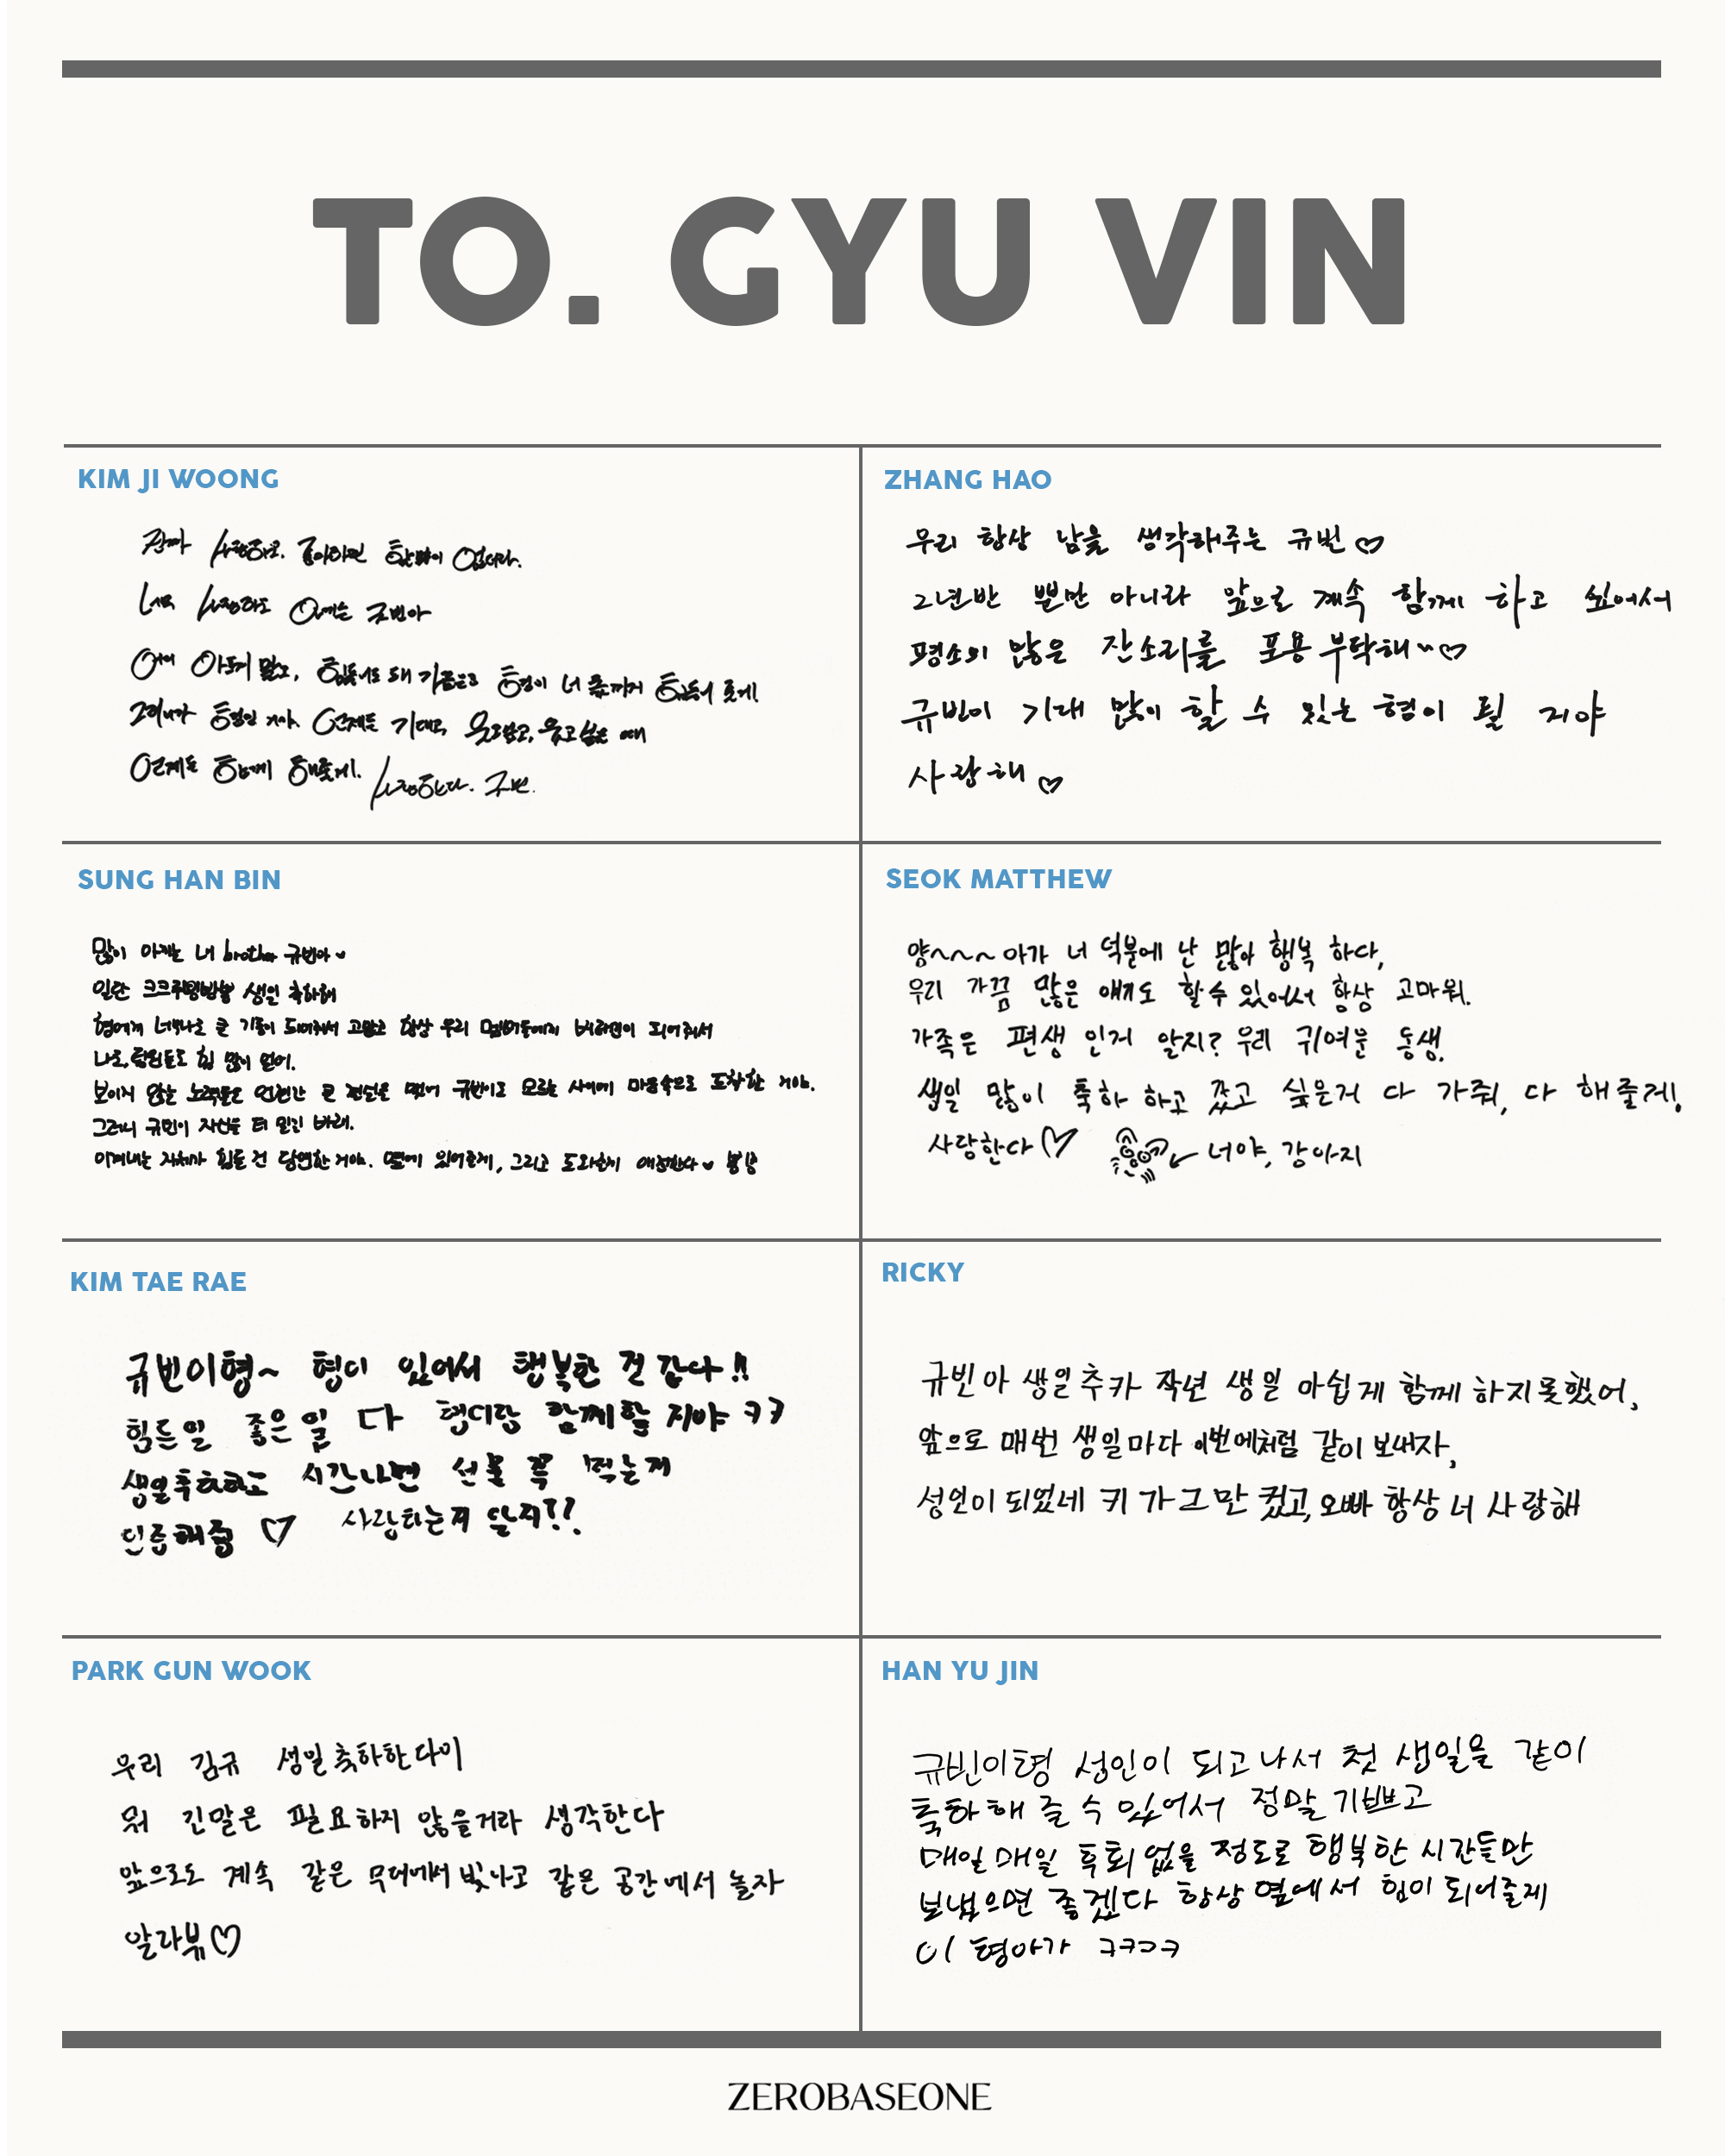 TO. GYU VIN
KIM JI WOONG
진짜 사랑하고. 좋아하면 할말이 없더라.
너무 사랑하는 규빈아
어디 아프지 말고,
형이니까
언제든 기대도
언제든 함께 해줄게. 사랑한다. 규빈.
ZHANG HAO
우리 항상 남을 생각해주는 규빈♡
2년반 뿐만 아니라 앞으로 계속 함께 하고 싶어서
평소의 많은 잔소리를 포용 부탁해~♡
규빈이 기대 많이 할 수 있는 형이 될 거야
사랑해♡
SUNG HAN BIN
많이 아끼는 내 brother 규빈아♡
일단 생일 축하해
형에게 너무나도 큰 기둥이 되어줘서 고맙고 항상 우리 멤버들에게 버팀목이 되어줘서
나도, 팀원들도 힘 많이 얻어.
보이지 않는 노력들은 언젠간 큰 전설을 맺어 규빈이도 모르는 사이에 마음속으로 도착할 거야.
그러니 규빈이 자신을 더 믿길 바래.
이겨내는 자체가 힘든 건 당연한 거야. 옆에 있어줄게, 그리고 도와줄게 애정한다♡
SEOK MATTHEW
양~~~아가 너 덕분에 난 많아 행복 하다,
우리 가끔 많은 얘기도 할 수 있어서 항상 고마워.
가족은 편생 인거 알지? 우리 귀여운 동생.
생일 많이 축하 하고 갖고 싶은거 다 가줘, 다 해 줄게!
사랑한다♡ ← 너야, 강아지
KIM TAE RAE
규빈이형~ 형이 있어서 행복한 것 같다!!
힘든일 좋은 일 다 형이랑 함께할 거야 ㅋㅋ
생일축하하고 시간나면 선물 꼭 찍는거
인증해줘 ♡ 사랑하는거 알지!!
RICKY
규빈아 생일추카 작년 생일 아쉽게 함께 하지못했어,
앞으로 매번 생일마다 이번에처럼 같이 보내자,
성인이 되었네 키 가 그만 컸고, 오빠 항상 너 사랑해
PARK GUN WOOK
우리 김규 생일축하한다이
뭐 긴말은 필요하지 않을거라 생각한다
앞으로도 계속 같은 무대에서 빛나고 같은 공간에서 놀자
알라뷰♡
HAN YU JIN
규빈이형 성인이 되고나서 첫 생일을 같이
축하해 줄 수 있어서 정말 기쁘고
매일매일 후회 없을 정도로 행복한 시간들만
보냈으면 좋겠다 항상 옆에서 힘이 되어줄게
이 형아가 ㅋㅋㅋㅋ
ZEROBASEONE